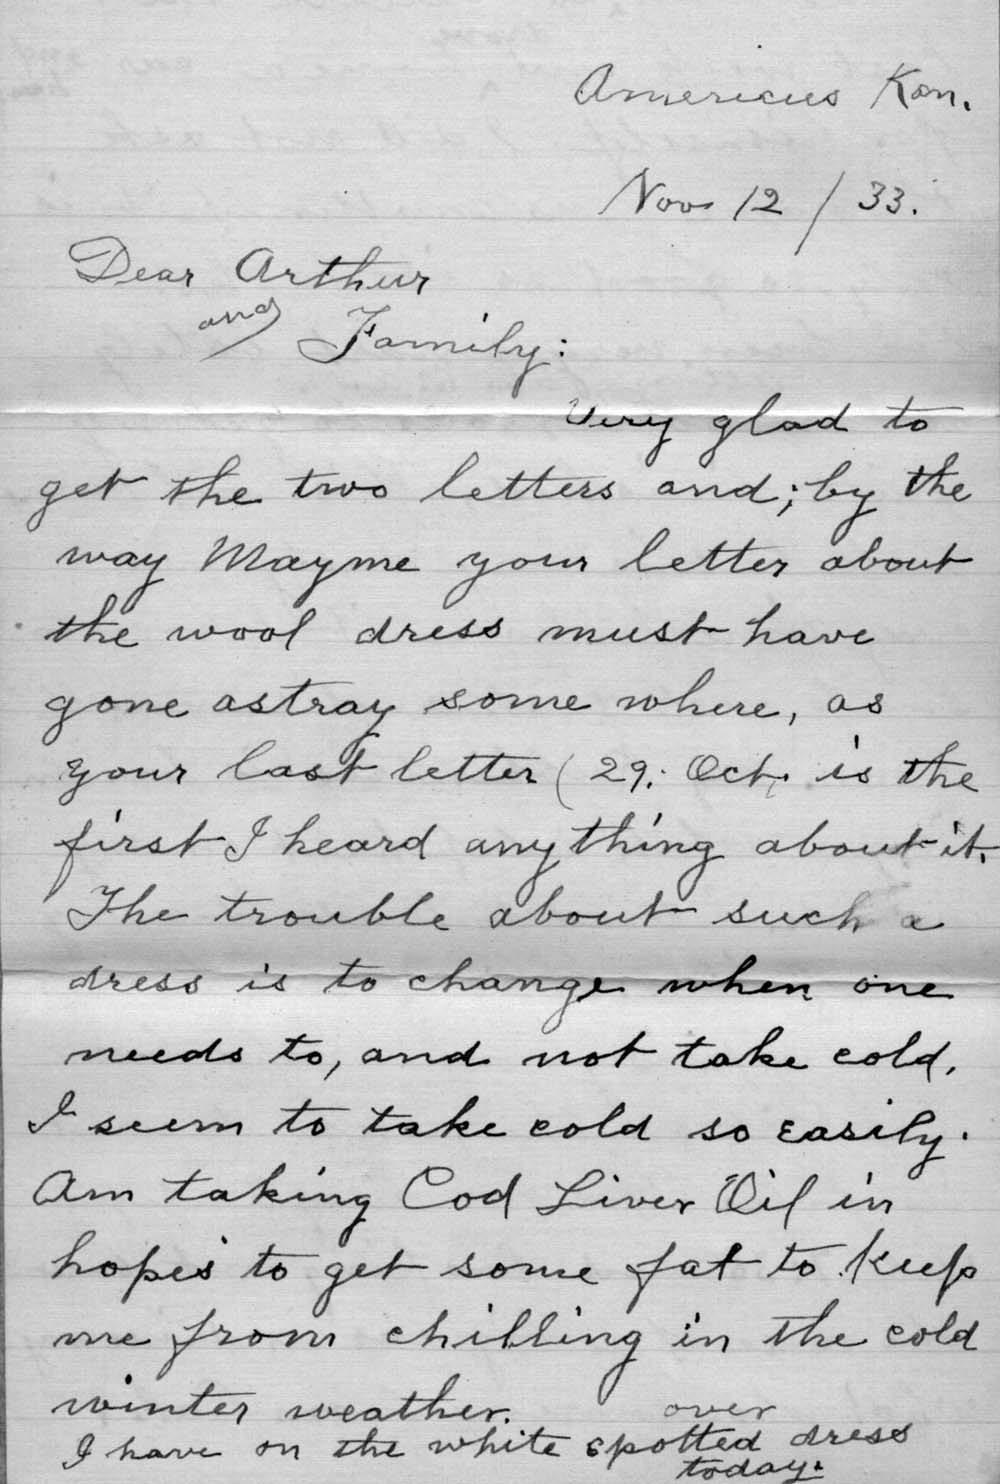 Americus Kan.
Nov 12 / 33.
Dear Arthur
and Family:
Very glad to
get the two letters and; by the
way Mayme your letter about
the wool dress must have
gone astray some where, as
your last letter (29. Oct. is the
first I heard any thing about it.
The trouble about such a
dress is to change when one
needs to, and not take cold.
I seem to take cold so easily.
Am taking Cod Liver Oil in
hopes to get some fat to keep
me from chilling in the cold
winter weather. over
I have on the white spotted dress
today.